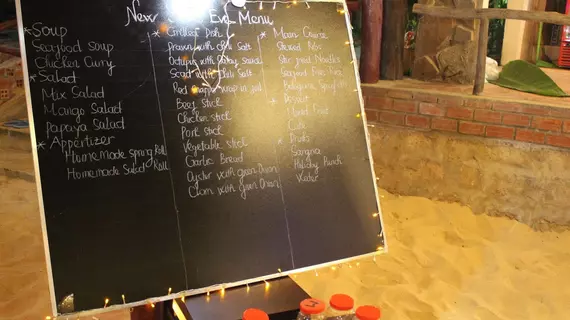 New Eve Menu
* Soup
Seafood Soup
Chicken Curry
* Salad
Mix Salad
Mango Salad
Papaya Salad
* Appertizer
Homemade Spring Roll
Homemade Salad Roll
* Grilled Dish
Prawn with chili Salt
Octopus with Satay Sauce
Scad with Chili Salt
Red Snapper wrap in foil
Beef Stick
Chicken stick
Pork Stick
Vegetable stick
Garlic Bread
Oyster with green Onion
Clam with green Onion
* Main Course
Stewed Ribs
Stir fried Noodles
Seafood Fried Rice
Bolognese Spaghetti
* Dessert
Mixed Fruit
Cake
* Drinks
Sangria
Holiday Punch
Water